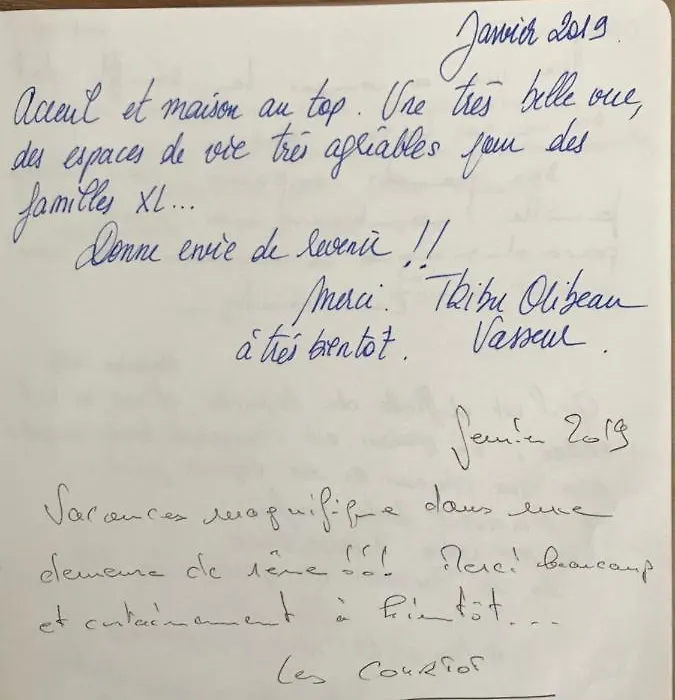 Janvier 2019.
Acceuil et maison au top. Une très belle vue,
des espaces de vie très agréables pour des
familles XL...
Donne envie de revenir !!
Merci. Tribu Olibeau
à très bientot. Vasseur.
février 2019
Vacances magnifique dans une
demeure de rêve !!! Merci beaucoup
et certainement à bientôt....
Les COURTOT